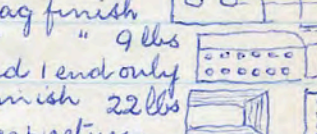 ag finish
" 9 lbs
d 1 end only
nish 22 lbs